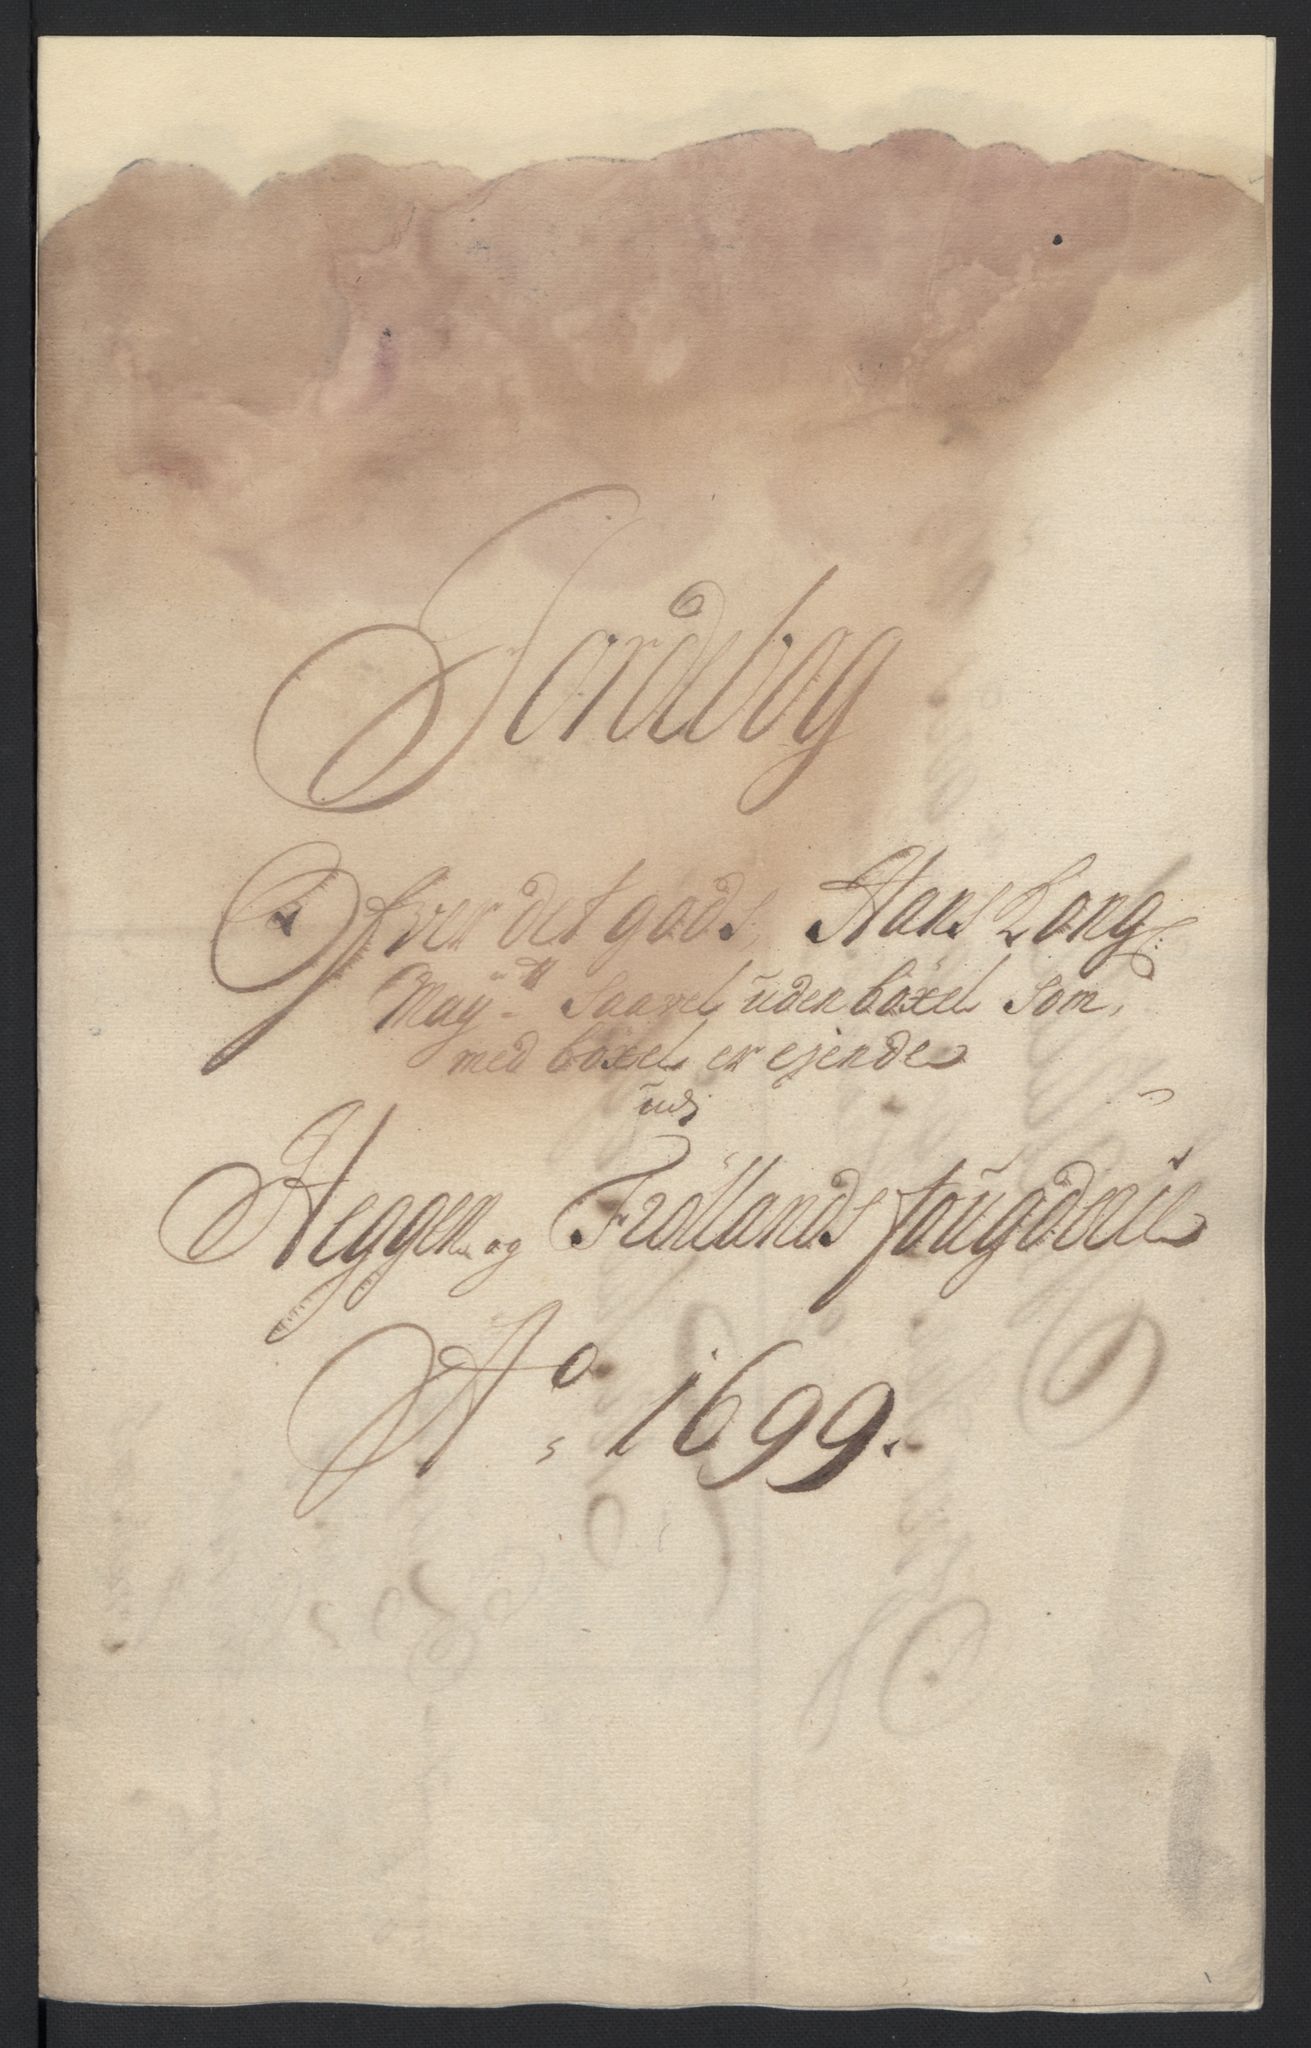 Jordebog
Ofver det gods, Hans Kong:
May.tt Saavel uden böxel Som,
med böxel er ejende
udj
Heggen og Fröllands fougderie
Ao 1699.